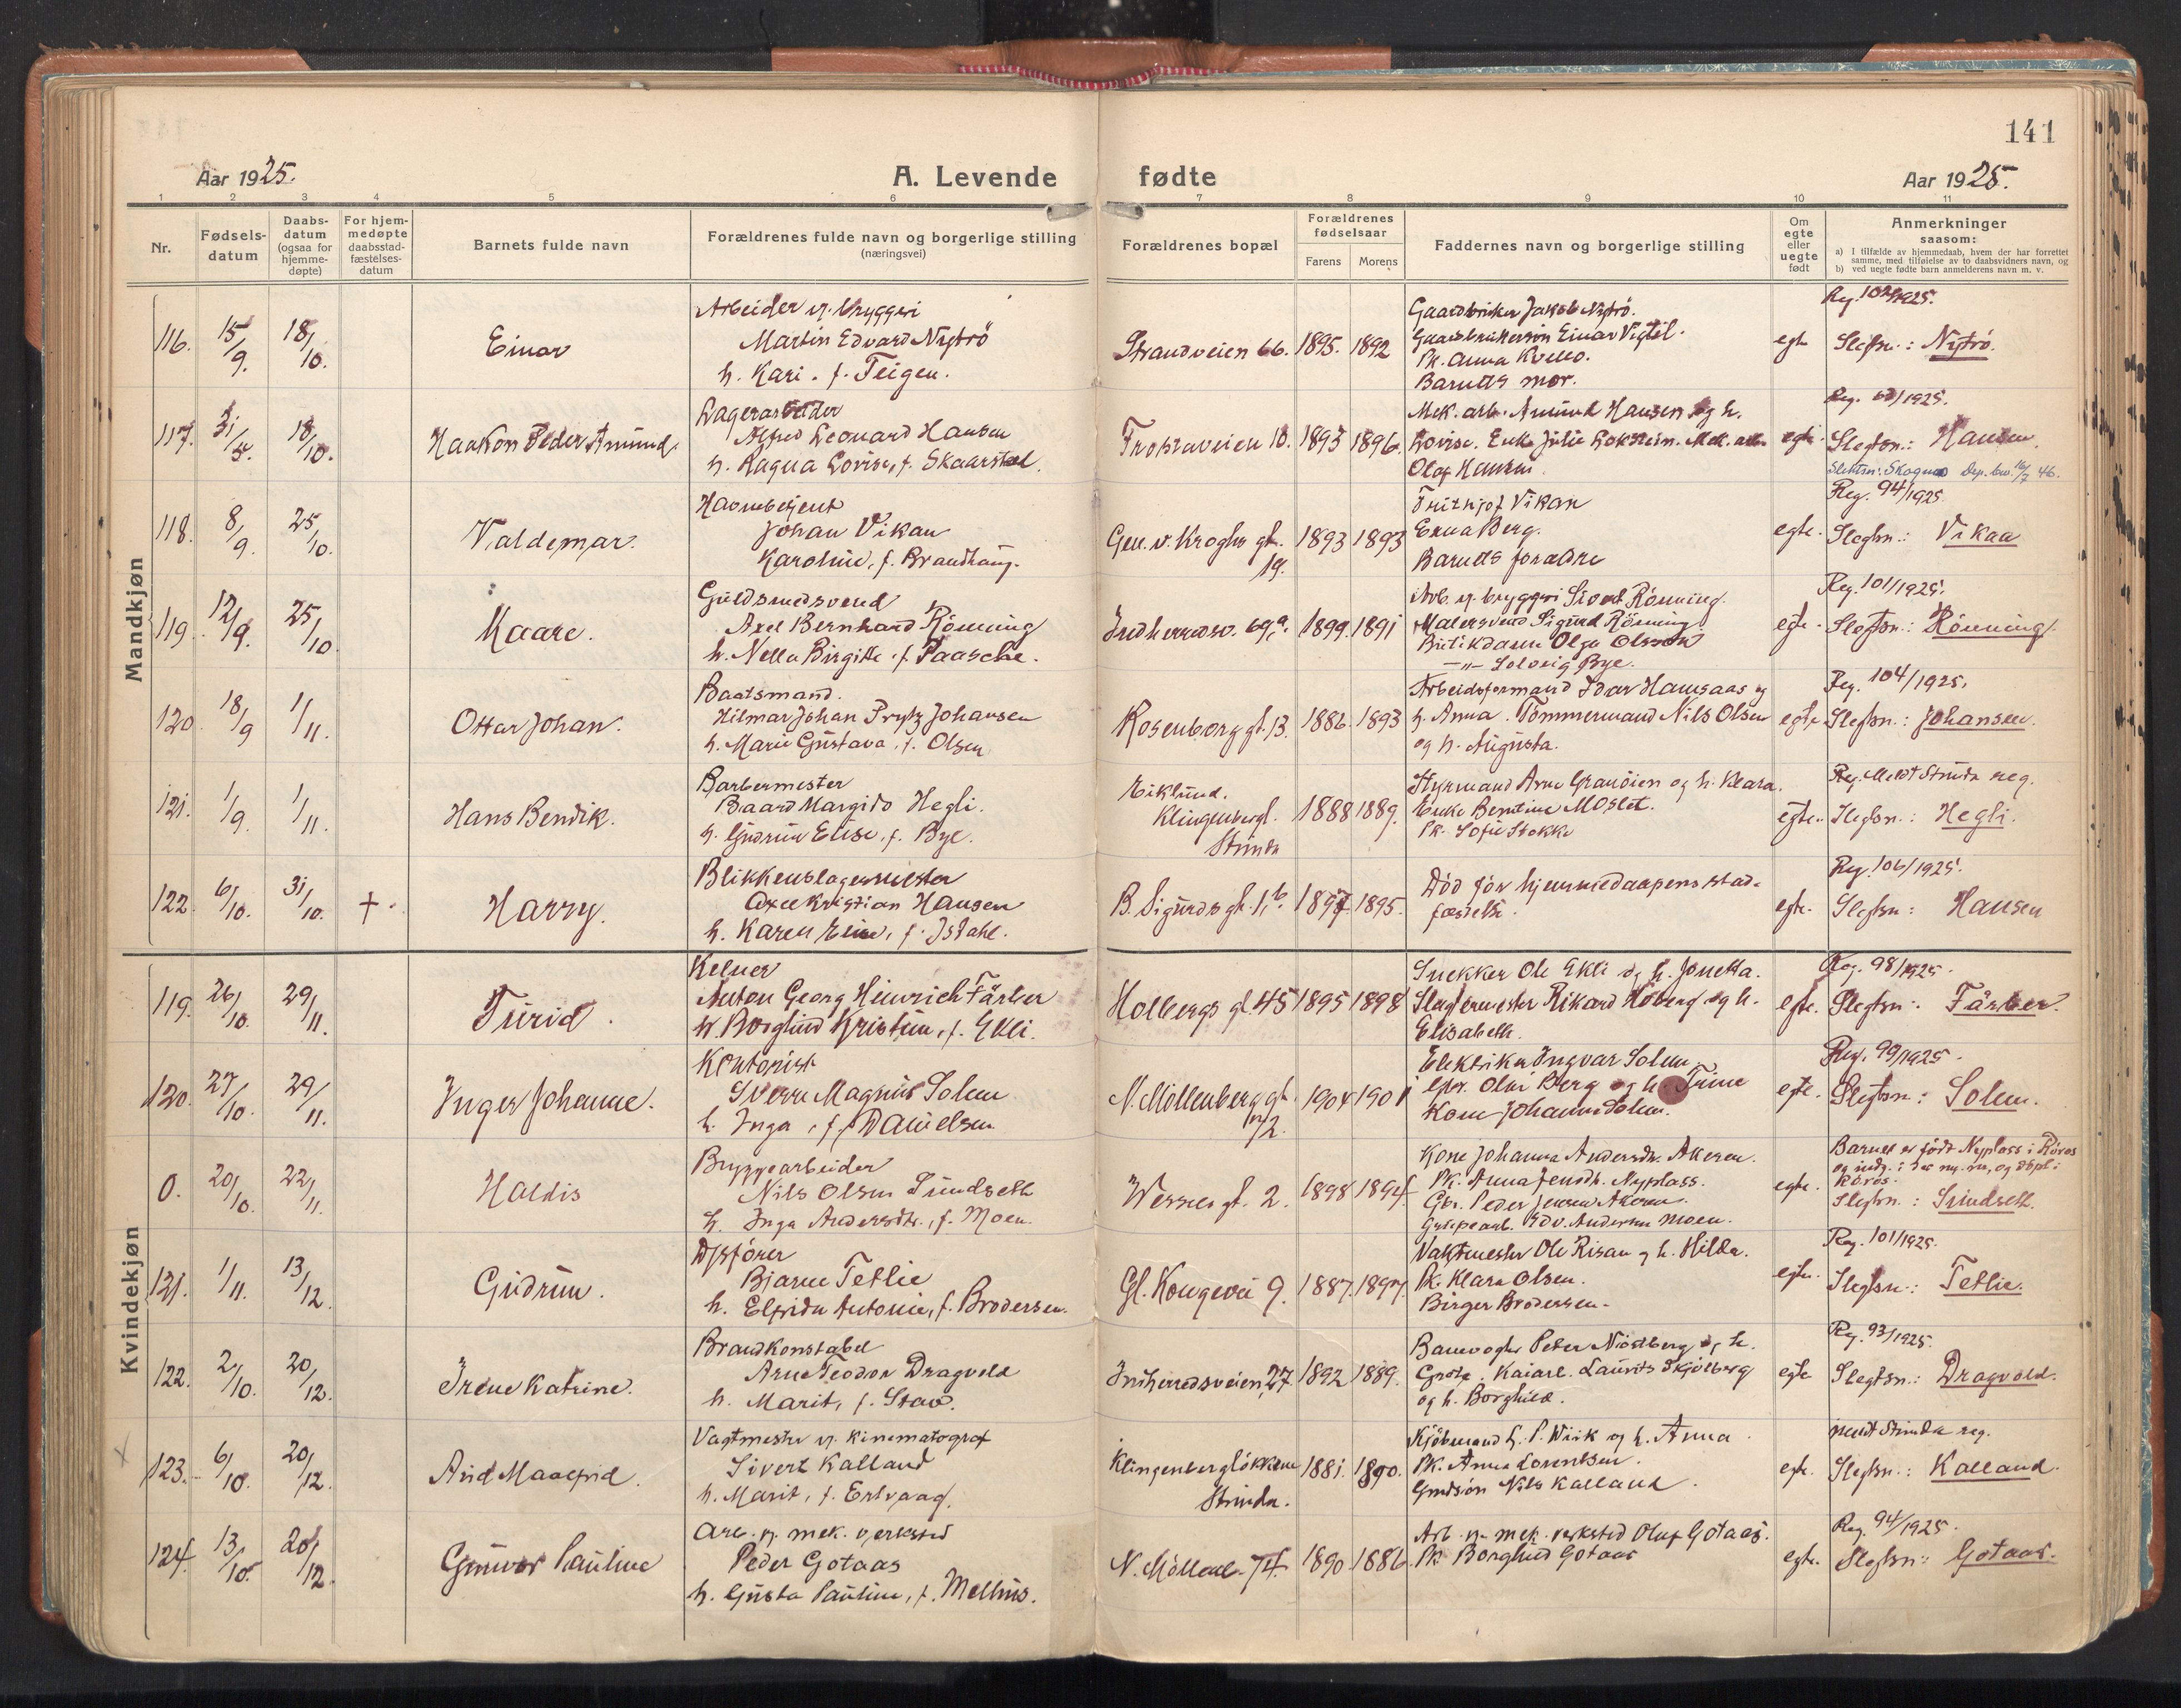 141
Aar 1925.
A. Levende fødte
Aar 1925.
1 2 3 4 5 6 7 8 9 10 11
Nr.
Fødsels-
datum
Daabs-
datum
(ogsaa for
hjemme-
døpte)
For hjem-
medøpte
daabsstad-
fæstelses-
datum
Barnets fulde navn
Forældrenes fulde navn og borgerlige stilling
(næringsvei)
Forældrenes bopæl
Forældrenes
fødselsaar
Farens Morens
Faddernes navn og borgerlige stilling
Om
egte
eller
uegte
født
Anmerkninger
saasom:
a) I tilfælde av hjemmedaab, hvem der har forrettet
samme, med tilføielse av to daabsvidners navn, og
b) ved uegte fødte barn anmelderens navn m. v.
Mandkjøn
116. 15/9. 18/10.
Einar
Arbeider v. bryggeri
Martin Edvard Nytrö
h. Kari. f. Teigen.
Strandveien 66. 1895. 1892
Gaardbruker Jakob Nytrö.
Gaardbrukersön Einar Vigtil.
Pk. Anna Kvello.
Barnets mor.
egte
Reg. 102/1925.
Slegtsn.: Nytrö.
117. 31/5. 18/10.
Haakon Peder Amund.
Lagerarbeider
Alfred Leonard Hansen
h. Ragna Lovise, f. Skaarstad.
Frostaveien 10. 1893 1896.
Mek. arb. Amund Hansen og h.
Lovise. Enke Julie Lokstein. Mek. arb.
Olaf Hansen.
egte.
Reg. /1925.
Slegtsn.: Hansen.
Slektsn: Skogmo Dep. bev. 16/7 46.
118. 8/9. 25/10.
Valdemar.
Havnebetjent
Johan Vikan
Karoline, f. Brandhaug.
Gen. v. Kroghs gt.
19.
1893 1893
Frithjof Vikan
Erna Berg.
Barnets foreldre
egte.
Reg. 94/1925
Slegtsn.: Vikan
119. 12/9. 25/10.
Kaare.
Guldsmedsvend
Axel Bernhard Rönning
h. Nella Birgitte. f. Paasche.
Indherredsv. 69a. 1899. 1891
Arb. v. bryggeri Sivert Rönning.
Malersvend Sigurd Rönning
Butikdame Olga Olsson
—"— Solveig Bye.
egte.
Reg. 101/1925.
Slegtsn.: Rönning.
120. 18/9 1/11.
Ottar Johan.
Baatsmand.
Hilmar Johan Prytz Johansen
h. Marie Gustava, f. Olsen
Rosenborg gt. 13. 1886. 1893
Arbeidsformand Idar Hamsaas og
h. Anna. Tömmermand Nils Olsen
og h. Augusta.
egte
Reg. 104/1925.
Slegtsn.: Johansen.
121. 1/9. 1/11.
Hans Bendik.
Barbermester
Baard Margido Hegli.
h. Gudrun Elise, f. Bye.
Eiklund.
Klingenbergl.
Strinda
1888 1889.
Styrmand Arne Granöien og h. Klara.
Enke Berntine Moslet.
Pk. Sofie Stokke
egte.
Reg. Meldt Strinda reg.
Slegtsn.: Hegli.
122 6/10. 31/10. †.
Harry.
Blikkenslagermester
Axel Kristian Hansen
h. Karen Eine, f. Isdahl.
B. Sigurds gt. 1b. 1897 1895.
Död för hjemmedaapens stad-
festelse.
egte.
Reg. 106/1925.
Slegtsn: Hansen
Kvindekjøn
119. 26/10. 29/11.
Turid.
Kelner
Anton Georg Heinrich Färber
h. Borghild Kristine, f. Ekli.
Holbergs gt. 45 1895 1898
Snekker Ole Ekli og h. Jonetta.
Slagtermester Rikard Hoberg og h.
Elisabeth.
egte.
Reg. 98/1925.
Slegtsn: Färber.
120. 27/10. 29/11.
Inger Johanne.
Kontorist
Sverre Magnus Solem
h. Inga, f. Danielsen
N. Möllenberg gt.
1904 1901
Elektriker Ingvar Solem.
Gbr. Olav Berg og h. Trine
Kone Johanna Solem.
egte.
Reg. 99/1925.
Slegtsn: Solem.
0. 20/10. 22/11.
Haldis
Bryggearbeider
Nils Olsen Sundseth
h. Inga Andersdtr., f. Moen.
Wessels gt. 2. 1898 1894
Kone Johanna Andersdtr. Akeren.
Pk. Anna Jensdtr. Nyplass.
Gbr. Peder Jensen Akeren.
Grubearb. Edv. Andersen Moen.
egte.
Barnet er födt Nyplass i Röros
og indg. i der ny. nr, og döpt i
Röros.
Slegtsn.: Sundseth.
121. 1/11. 13/12.
Gudrun.
Bjarne Tetlie
h. Elfrida Antonie, f. Brodersen.
Gl. Kongevei 9. 1887. 1897.
Vaktmester Ole Risan og h. Hilda.
Pk. Klara Olsen.
Birger Brodersen.
egte.
Reg. 101/1925.
Slegtsn.: Tetlie.
122. 2/10. 20/12.
Irene Katrine.
Brandkonstabel
Arne Teodor Dragvold
h. Marit, f. Stav.
Inherredsveien 27. 1892 1889.
Banevogter Peter Nöstberg og h.
Grete. Kaiarb. Laurits Skjölberg
og h. Borghild.
egte
Reg. 93/1925.
Slegtsn.: Dragvold.
X
123. 6/10. 20/12.
Arid Maalfrid.
Vagtmester v. kinematograf
Sivert Kalland
h. Marit, f. Ertvaag.
Klingenberglökken
Strinda.
1881. 1890.
Kjöbmand L. P. Wiik og h. Anna.
Pk. Anna Lorentsen.
Grndsön Nils Kalland.
egte.
meldt Strinda reg.
Slegtsn.: Kalland.
124. 13/10. 20/12.
Gunvor Pauline
Arb. v. mek. verksted
Peder Gotaas
h. Gusta Pauline, f. Melhus.
N. Möllenb. 74. 1890 1886.
Arb. v. mek. verksted Oluf Gotaas.
Pk Borghild Gotaas
egte.
Reg. 94/1925.
Slegtsn: Gotaas.